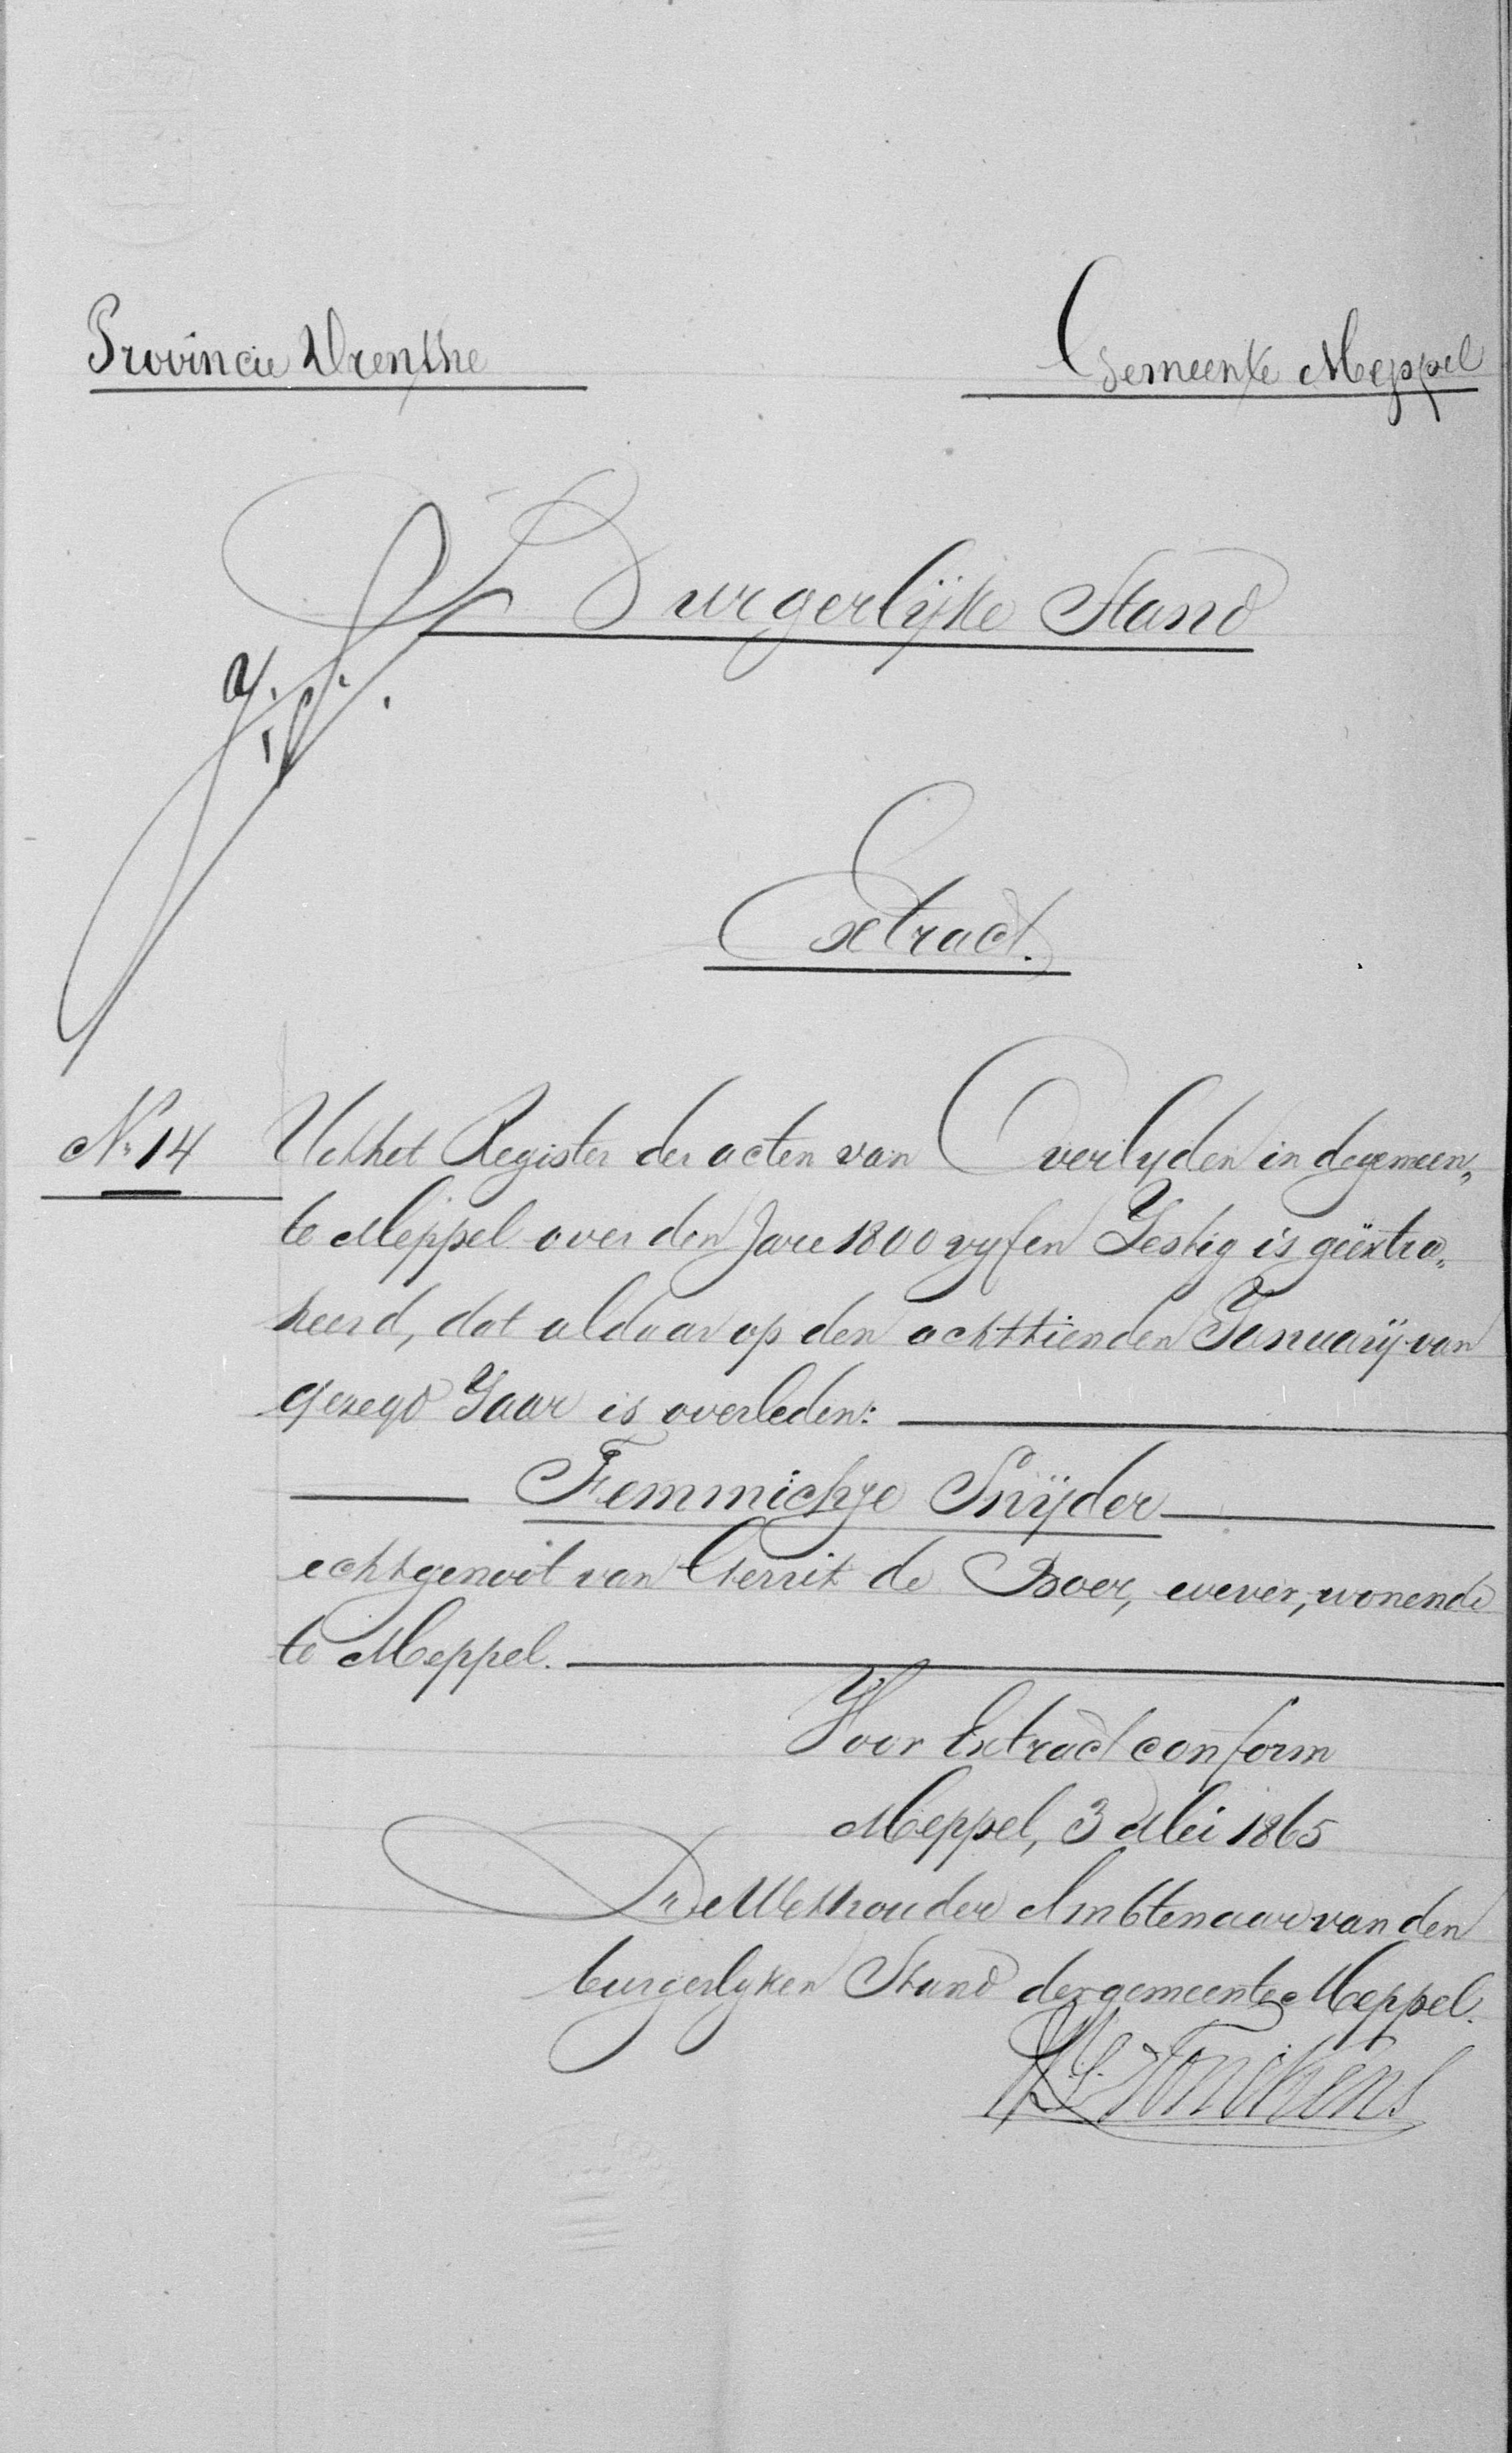 Provincie Drenthe
Gemeente Meppel
Burgerlÿke Stand
Extract.
No 14
Uit het Register der acten van Overlyden in de gemeen„
te Meppel over den Jare 1800 vyf en Zestig is geëxtra„
heerd, dat aldaar op den achttienden Januarÿ van
gezegd Jaar is overleden:
Femmichje Snÿder
echtgenoot van Gerrit de Boer, wever, wonende
te Meppel.
Voor Extract conform
Meppel, 3 Mei 1865
De Wethouder Ambtenaar van den
burgerlyken Stand der gemeente Meppel.